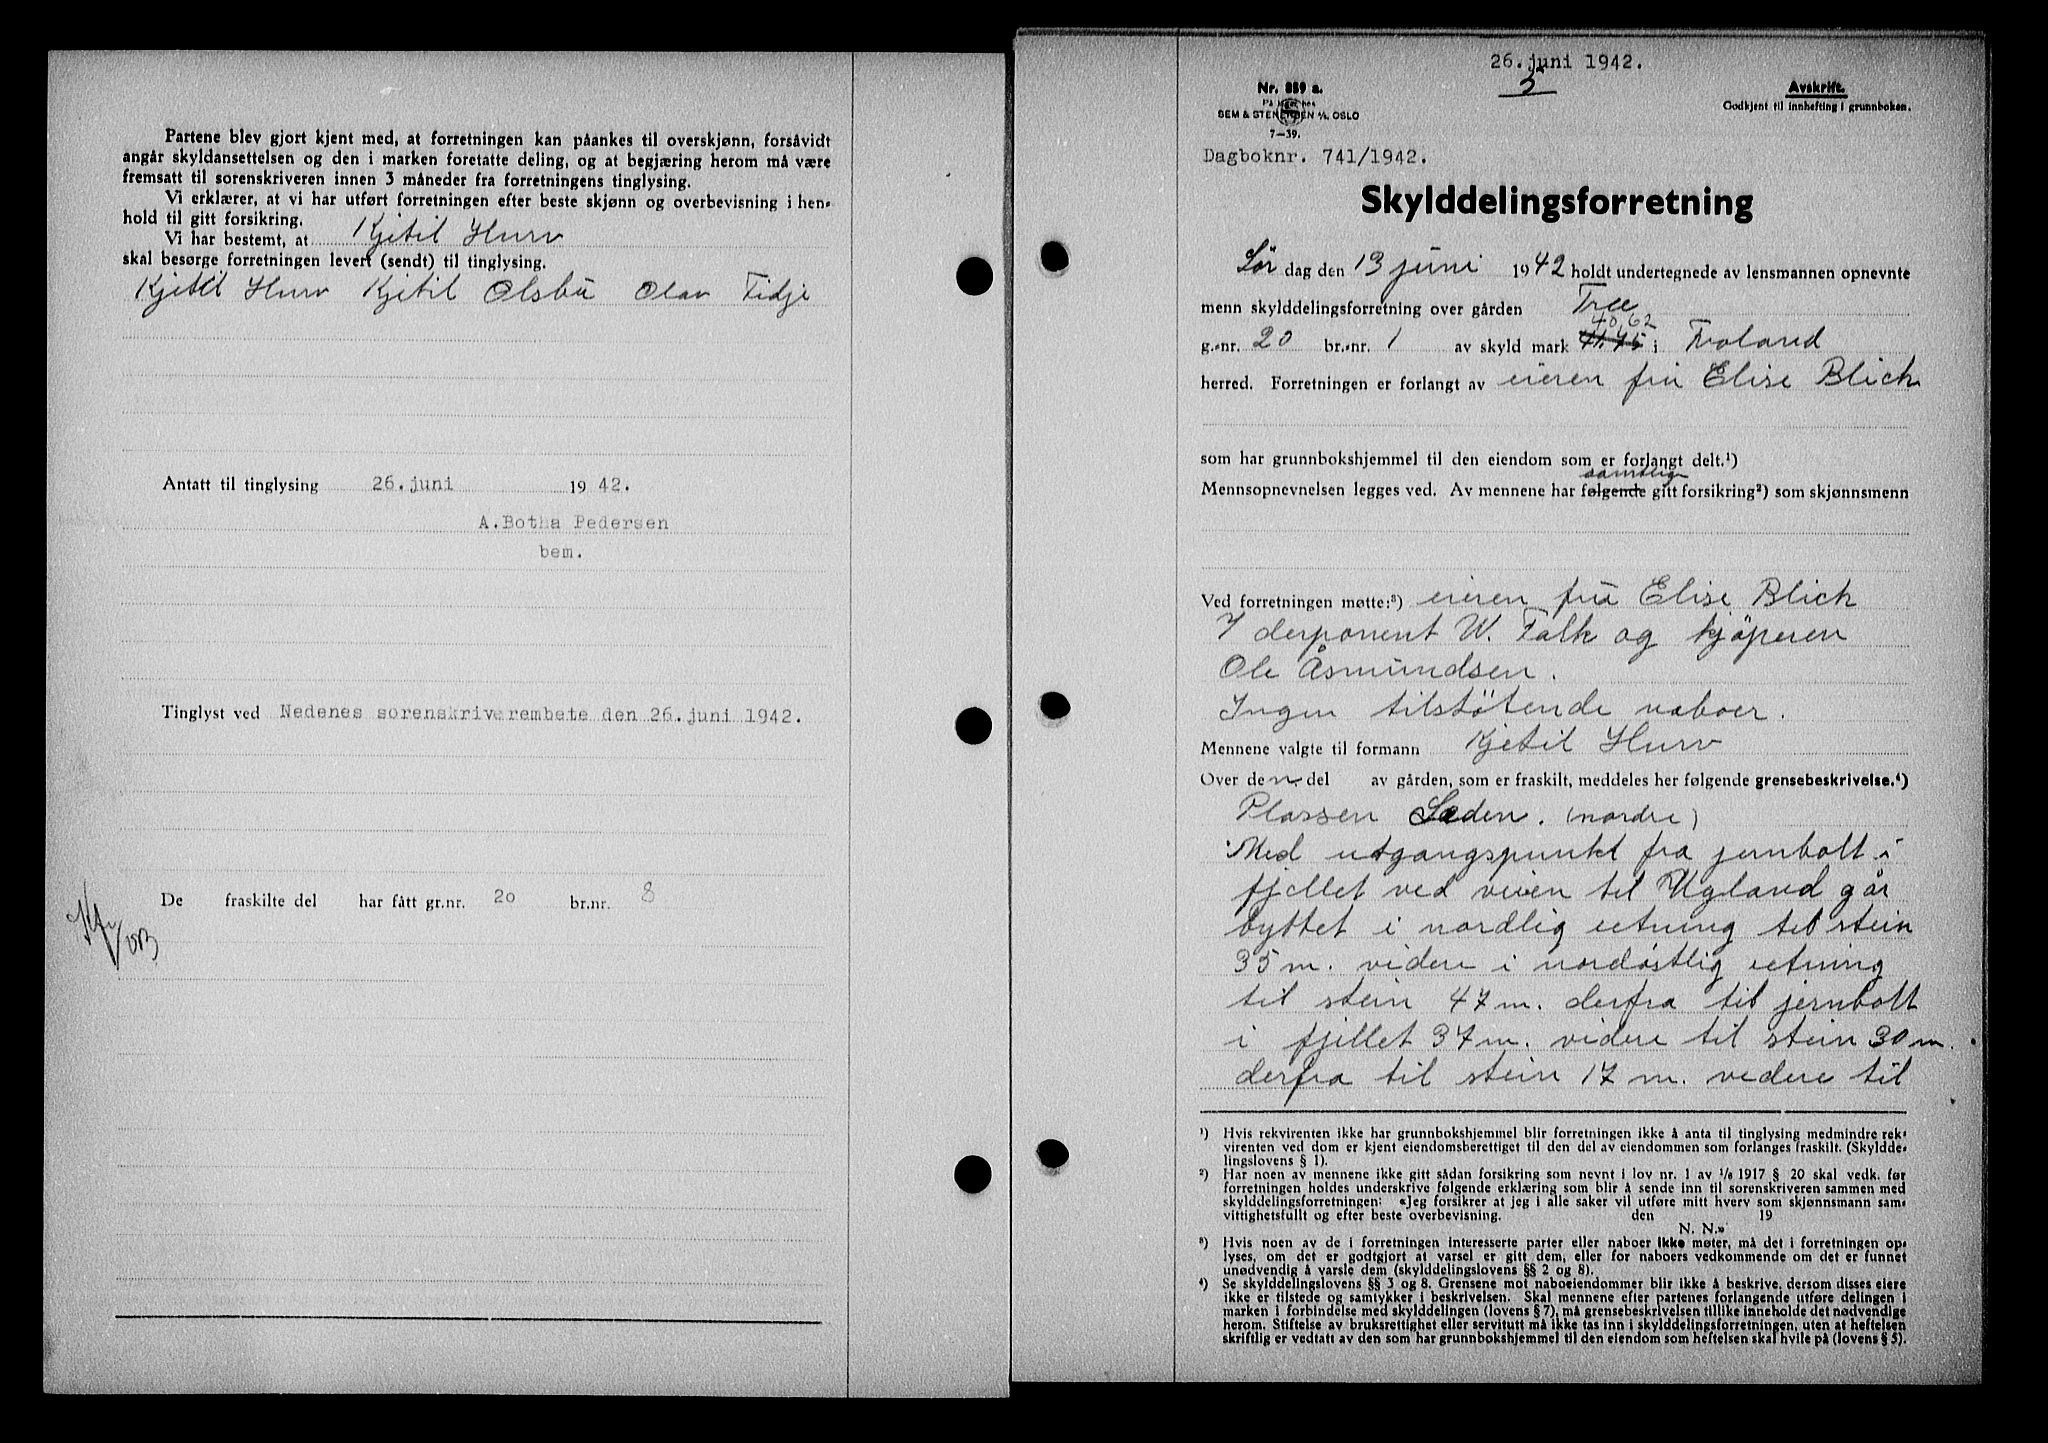 Partene blev gjort kjent med, at forretningen kan påankes til overskjønn, forsåvidt
angår skyldansettelsen og den i marken foretatte deling, og at begjæring herom må være
fremsatt til sorenskriveren innen 3 måneder fra forretningens tinglysing.
Vi erklærer, at vi har utført forretningen efter beste skjønn og overbevisning i hen-
hold til gitt forsikring.
Vi har bestemt, at Kjetil Hurv
skal besørge forretningen levert (sendt) til tinglysing.
Kjetil Hurv Kjetil Olsbu Olav Tidje
Antatt til tinglysing 26.juni 1942.
A.Botha Pedersen
bem.
Tinglyst ved Nedenes sorenskriverembete den 26.juni 1942.
De fraskilte del har fått gr.nr. 20 br.nr. 8
26.juni 1942.
5
Nr. 859 a.
På lager hos
SEM & STENERSEN A/S, OSLO
7-39.
Avskrift.
Godkjent til innhefting i grunnboken.
Dagboknr. 741/1942.
Skylddelingsforretning
Lör dag den 13 juni 1942 holdt undertegnede av lensmannen opnevnte
menn skylddelingsforretning over gården Tree
40,62
g.-nr. 20 br.-nr. 1 av skyld mark 41.75 i Froland
herred. Forretningen er forlangt av eieren fru Elise Blich
som har grunnbokshjemmel til den eiendom som er forlangt delt.¹)
samtlige
Mennsopnevnelsen legges ved. Av mennene har følgende gitt forsikring²) som skjønnsmenn
Ved forretningen møtte:³) eieren fru Elise Blich
derponent W. Falk og kjöperen
Ole Åsmundsen.
Ingen tilstötende naboer.
Mennene valgte til formann Kjetil Hurv
Over den del av gården, som er fraskilt, meddeles her følgende grensebeskrivelse.⁴)
Plassen Læden. (nordre)
Med utgangspunkt fra jernbolt i
fjellet ved veien til Ugland går
byttet i nordlig retning til stein
35 m. videre i nordöstlig retning
til stein 47 m. derfra til jernbolt
i fjellet 37 m. videre til stein 30 m.
derfra til stein 17 m. videre til
¹) Hvis rekvirenten ikke har grunnbokshjemmel blir forretningen ikke å anta til tinglysing medmindre rek-
virenten ved dom er kjent eiendomsberettiget til den del av eiendommen som forlanges fraskilt. (Skyldde-
lingslovens § 1).
²) Har noen av mennene ikke gitt sådan forsikring som nevnt i lov nr. 1 av 1/6 1917 § 20 skal vedk. før
forretningen holdes underskrive følgende erklæring som blir å sende inn til sorenskriveren sammen med
skylddelingsforretningen: «Jeg forsikrer at jeg i alle saker vil utføre mitt hverv som skjønnsmann sam-
vittighetsfullt og efter beste overbevisning. den 19
N. N.»
³) Hvis noen av de i forretningen interesserte parter eller naboer ikke møter, må det i forretningen op-
lyses, om det er godtgjort at varsel er gitt dem, eller for naboers vedkommende om det er funnet
unødvendig å varsle dem (skylddelingslovens §§ 2 og 8).
⁴) Se skylddelingslovens §§ 3 og 8. Grensene mot naboeiendommer blir ikke å beskrive, dersom disses eiere
ikke er tilstede og samtykker i beskrivelsen. Skal mennene efter partenes forlangende utføre delingen i
marken i forbindelse med skylddelingen (lovens § 7), må grensebeskrivelsen tillike inneholde det nødvendige
herom. Stiftelse av bruksrettighet eller servitutt må ikke tas inn i skylddelingsforretningen, uten at heftelsen
skriftlig er vedtatt av den som har grunnbokshjemmel til den eiendom som heftelsen skal hvile på (lovens § 5).